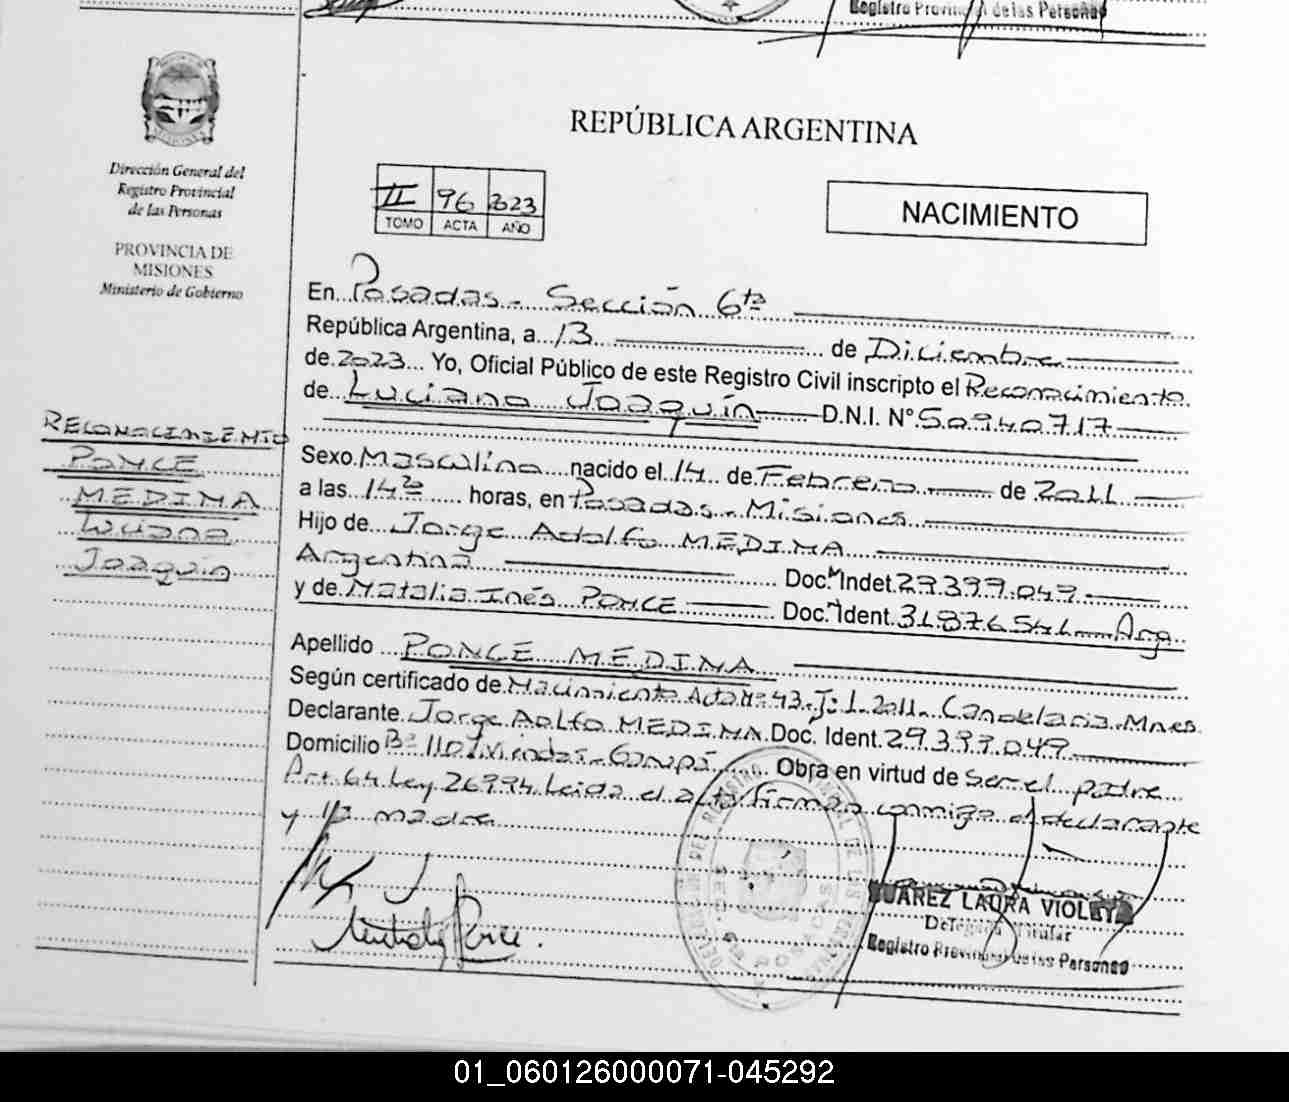 Registro Provincial de las Personas
Dirección General del
Registro Provincial
de las Personas
PROVINCIA DE
MISIONES
Ministerio de Gobierno
REPÚBLICA ARGENTINA
II 96 2023
TOMO ACTA AÑO
NACIMIENTO
En Posadas - Sección 6ta
República Argentina, a 13 de Diciembre
de 2023 Yo, Oficial Público de este Registro Civil inscripto el Reconocimiento
de Luciano Joaquín D.N.I. N° 50940717
RECONOCIMIENTO
PONCE
MEDINA
Luciano
Joaquín
Sexo Masculino nacido el 14 de Febrero de 2011
a las 14 horas, en Posadas - Misiones
Hijo de Jorge Adolfo MEDINA
Argentina Doc. Indet. 29.399.049
y de Natalia Inés PONCE Doc. Ident. 31.876.541 Arg.
Apellido PONCE MEDINA
Según certificado de Nacimiento Acta N° 43 - J: 1 - 2011 - Candelaria - Mnes
Declarante Jorge Adolfo MEDINA Doc. Ident. 29.399.049
Domicilio B° 110 Viviendas - Garupá Obra en virtud de ser el padre
Art. 64 Ley 26994 Leida el acta firman conmigo el declarante
y la madre
Natalia Ponce
SUAREZ LAURA VIOLETA
Delegada Titular
Registro Provincial de las Personas
01_060126000071-045292